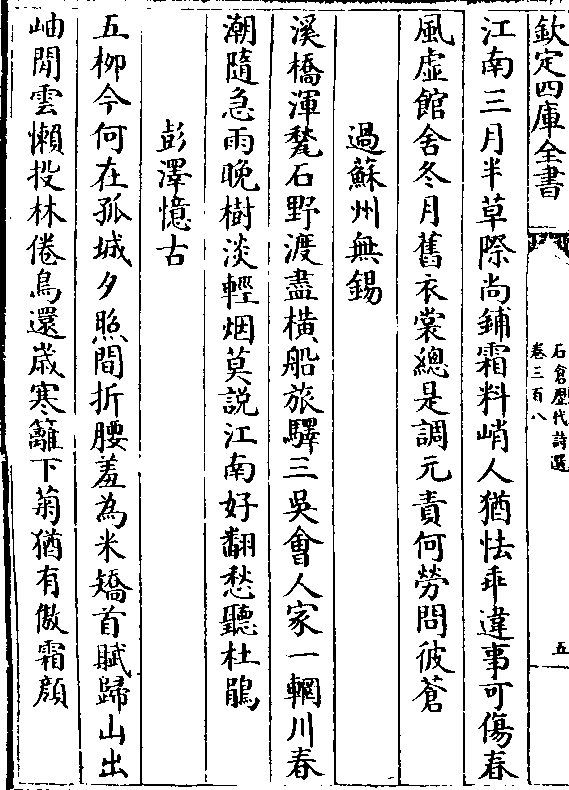 欽定四庫全書
石倉歷代詩選
卷三百八
五
江南三月半草際尚鋪霜料峭人猶怯乖違事可傷春
風虛館舍冬月舊衣裳總是調元責何勞問彼蒼
過蘇州無錫
溪橋渾甃石野渡盡橫船旅驛三吳會人家一輞川春
潮隨急雨晚樹淡輕烟莫説江南好翻愁聽杜鵑
彭澤憶古
五栁今何在孤城夕照間折腰羞為米矯首賦歸山出
岫閒雲懶投林倦鳥還嵗寒籬下菊猶有傲霜顔